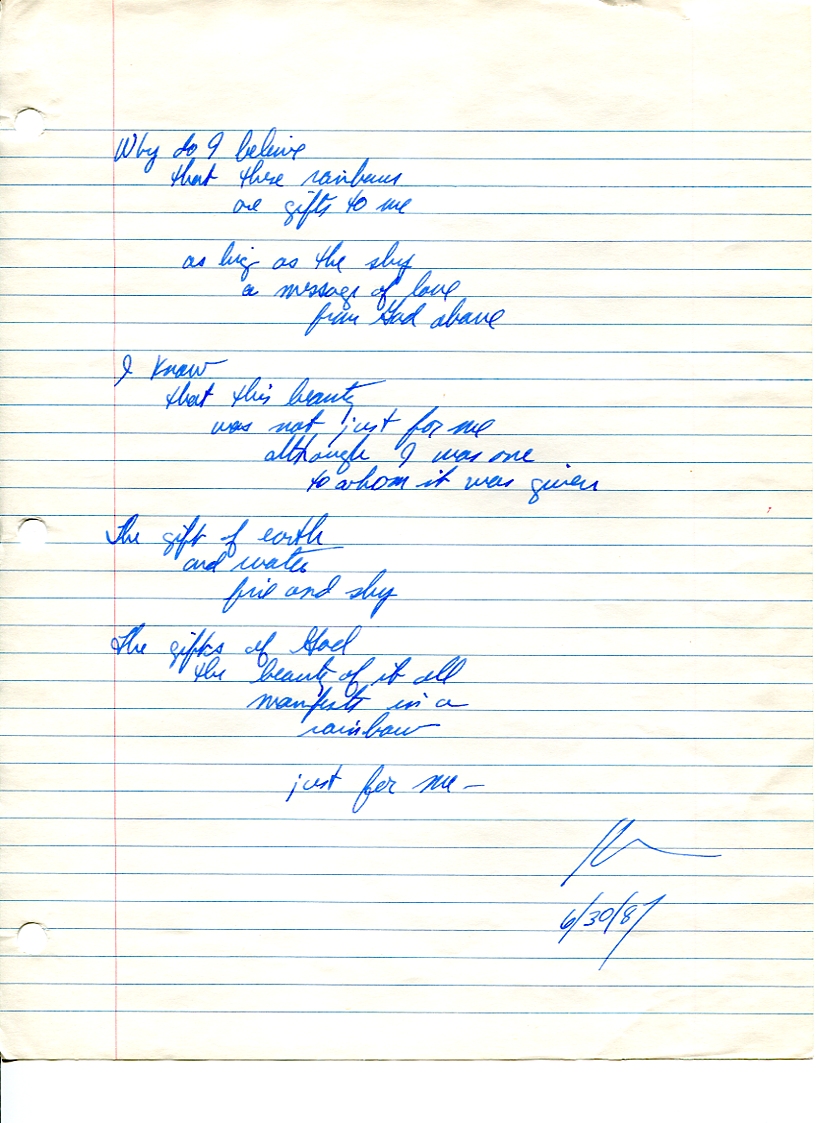 Why do I believe
that these rainbows
are gifts to me
as big as the sky
a message of love
from God above
I know
that this beauty
was not just for me
although I was one
to whom it was given
The gift of earth
and water
fire and sky
The gifts of God
the beauty of it all
manifests in a
rainbow
just for me —
6/30/87